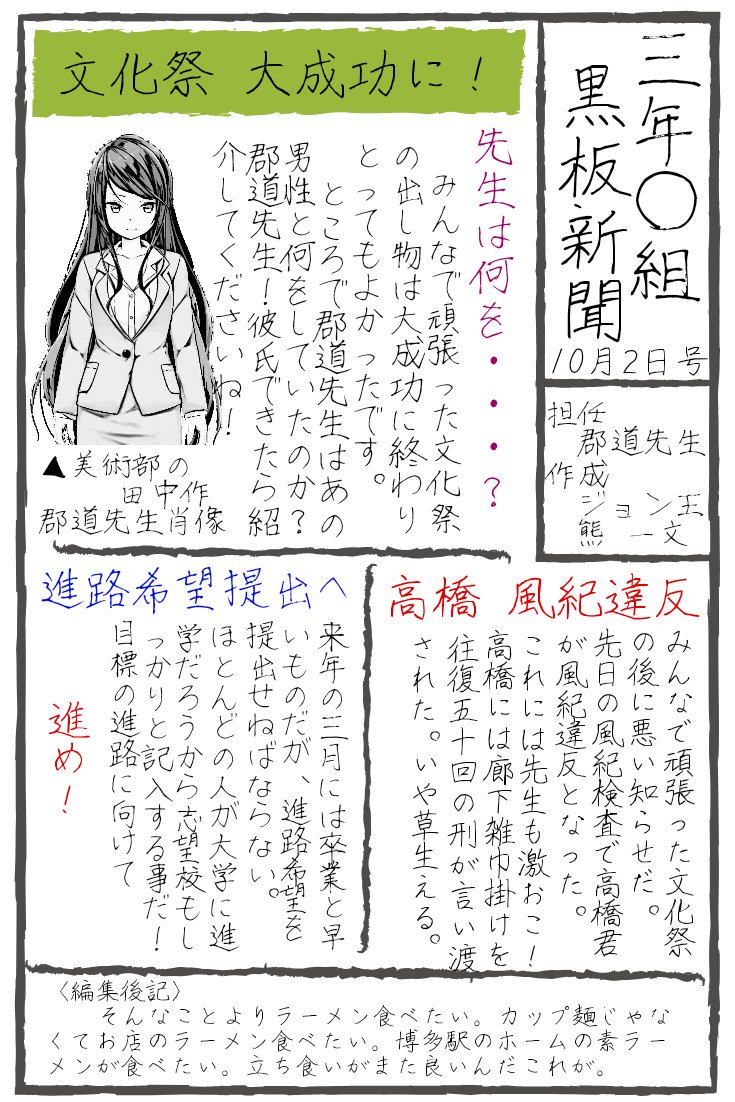 三年〇組
黒板新聞
10月2日号
担任
郡道先生
作成
ジョン王
熊 一文
文化祭 大成功に！
先生は何を・・・？
みんなで頑張った文化祭
の出し物は大成功に終わり
とってもよかったです。
ところで郡道先生はあの
男性と何をしていたのか？
郡道先生！彼氏できたら紹
介してくださいね！
▲美術部の
田中作
郡道先生肖像
高橋 風紀違反
みんなで頑張った文化祭
の後に悪い知らせだ。
先日の風紀検査で高橋君
が風紀違反となった。
これには先生も激おこ！
高橋には廊下雑巾掛けを
往復五十回の刑が言い渡
された。いや草生える。
進路希望提出へ
来年の三月には卒業と早
いものだが、進路希望を
提出せねばならない。
ほとんどの人が大学に進
学だろうから志望校もし
っかりと記入する事だ！
目標の進路に向けて
進め！
〈編集後記〉
そんなことよりラーメン食べたい。カップ麺じゃな
くてお店のラーメン食べたい。博多駅のホームの素ラー
メンが食べたい。立ち食いがまた良いんだこれが。